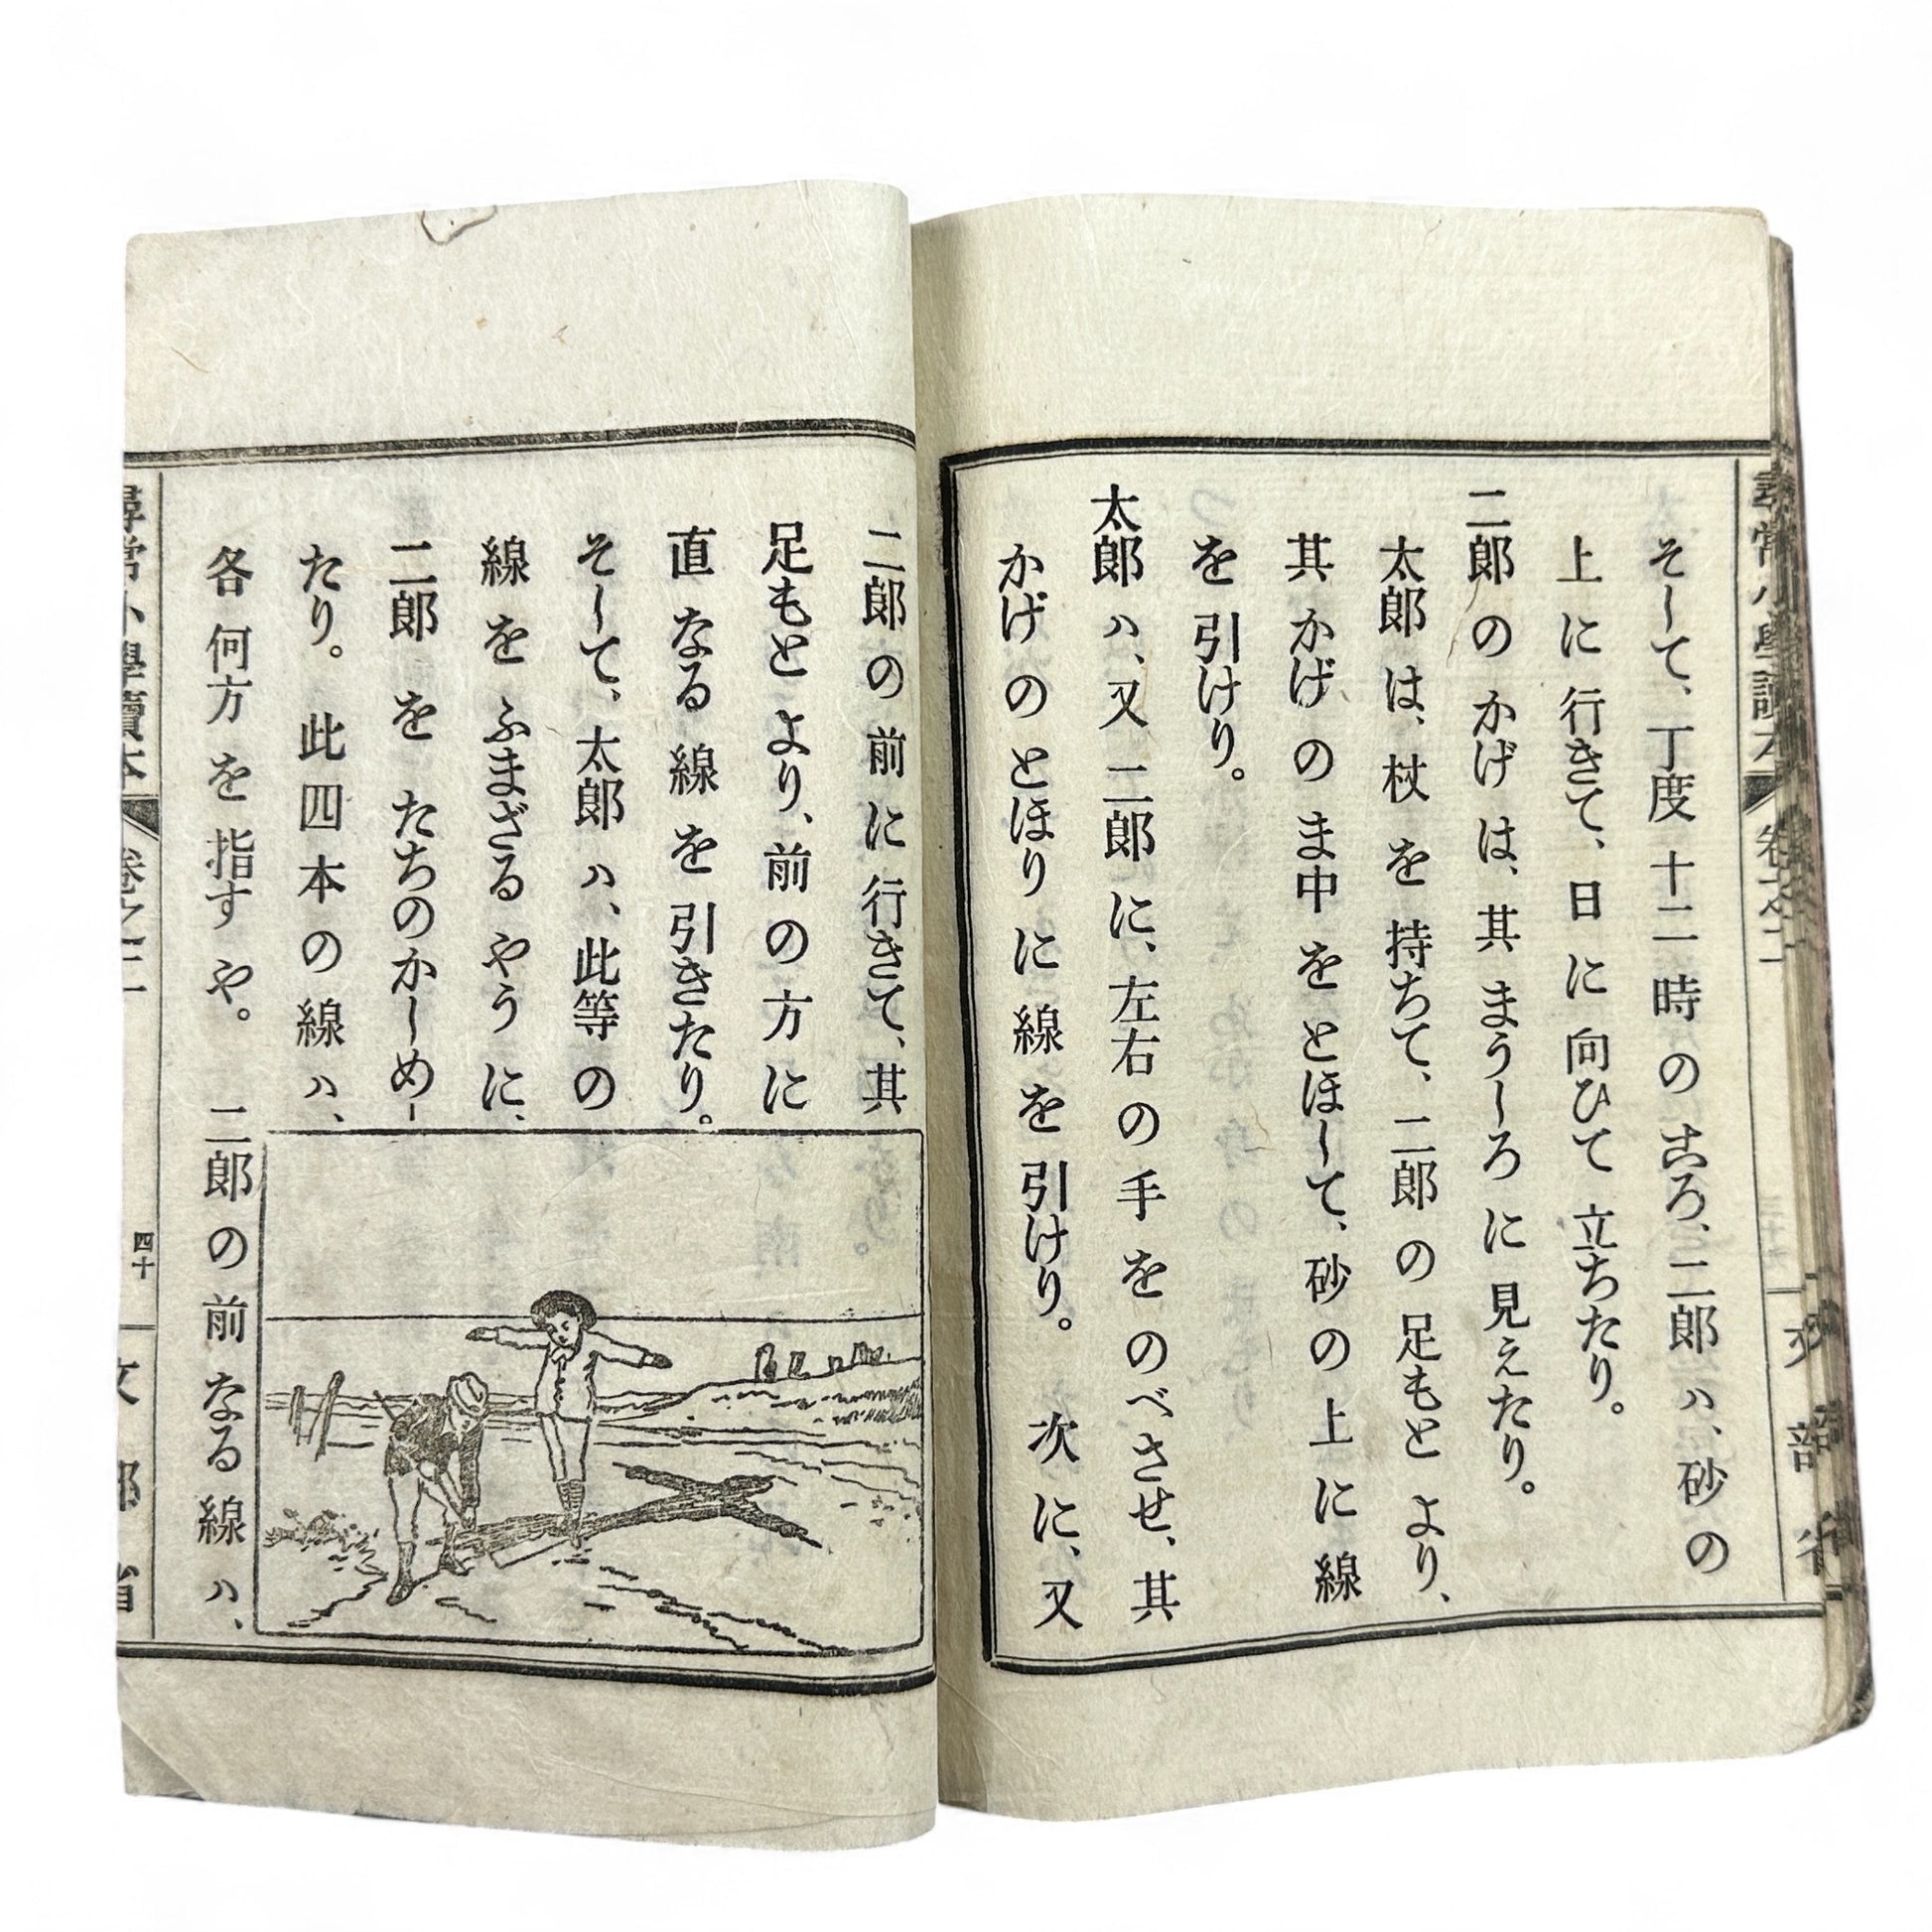 尋常小學讀本 卷之二 文部省
そして、丁度十二時のころ、二郎ハ、砂の
上に行きて、日に向ひて立ちたり。
二郎のかげは、其まうしろに見えたり。
太郎は、杖を持ちて、二郎の足もとより、
其かげのま中をとほして、砂の上に線
を引けり。
太郎ハ、又二郎に、左右の手をのべさせ、其
かげのとほりに線を引けり。次に、又
二郎の前に行きて、其
足もとより、前の方に
直なる線を引きたり。
そして、太郎ハ、此等の
線をふまざるやうに、
二郎をたちのかしめ-
たり。此四本の線ハ、
各何方を指すや。二郎の前なる線ハ、
尋常小學讀本 卷之二 四十 文部省